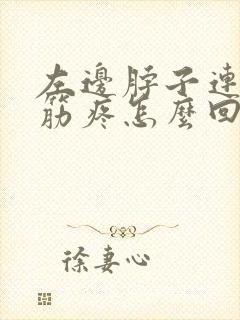 左邊脖子連
筋疼怎麼回
徐妻心